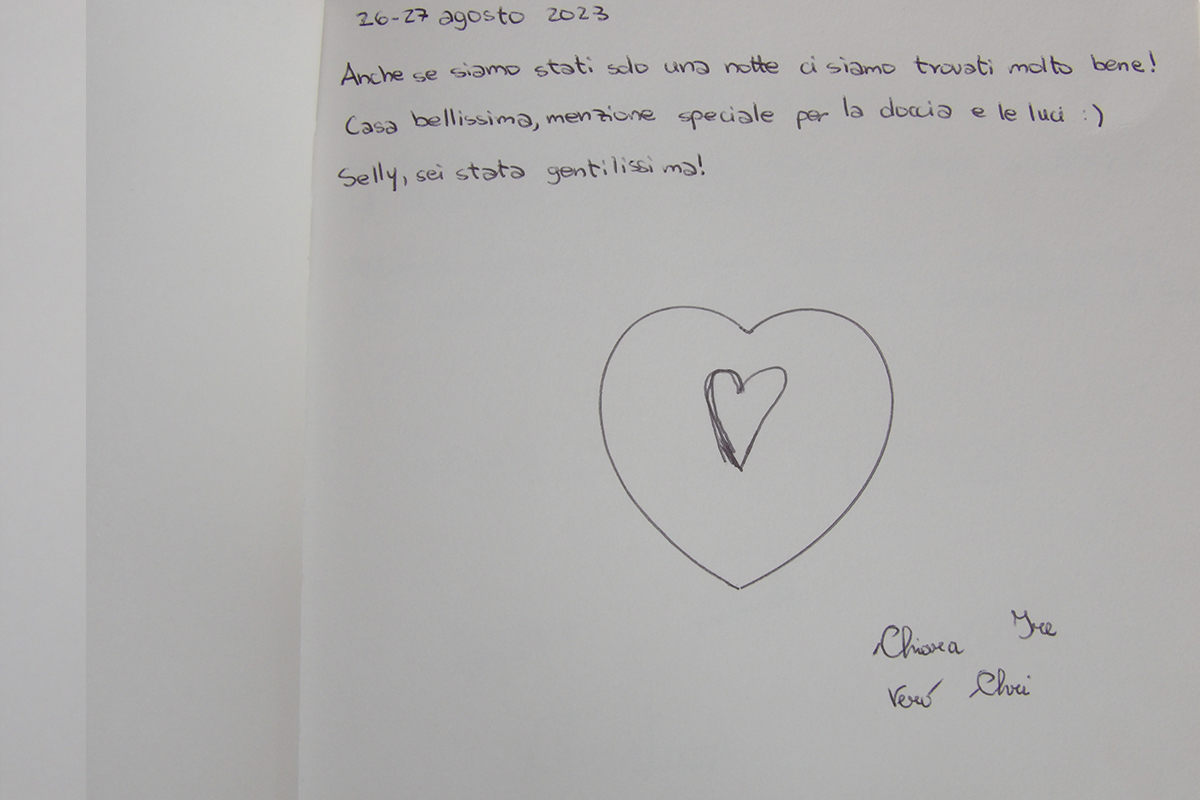 26-27 agosto 2023
Anche se siamo stati solo una notte ci siamo trovati molto bene!
Casa bellissima, menzione speciale per la doccia e le luci :)
Selly, sei stata gentilissima!
Chiara
Verò